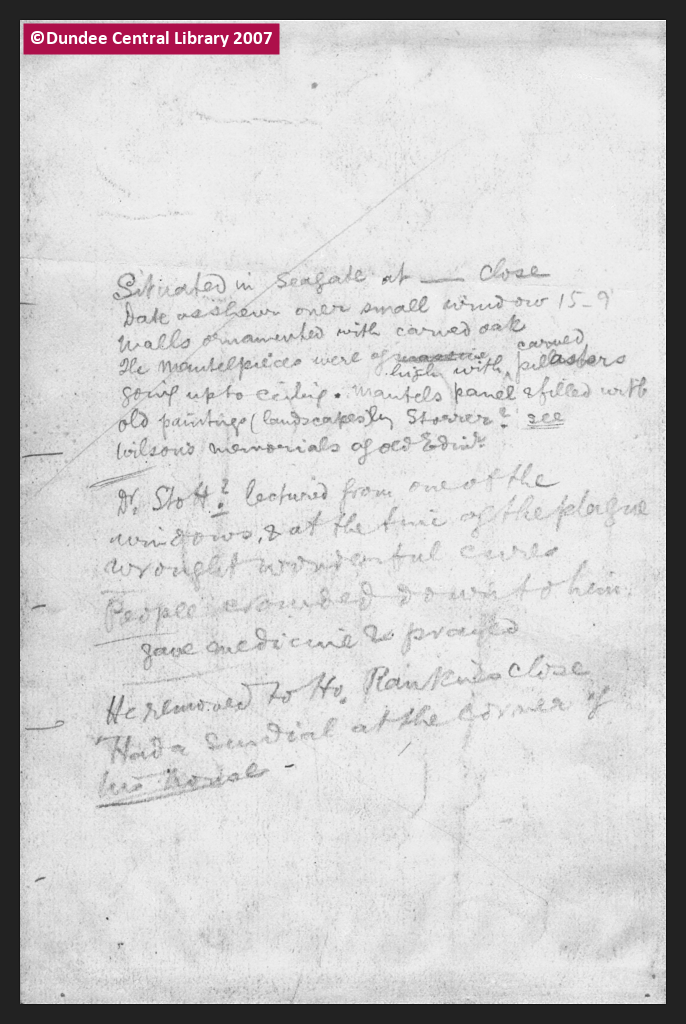 ©Dundee Central Library 2007
Situated in Seagate at —— Close
Date as shewn over small window 15-9
Walls ornamented with carved oak
The Mantelpieces were of massive carved
high with pillasters
going up to ceiling. Mantels panel & filled with
old paintings (landscapes) by Storrer? see
Wilson's memorials of old Edinr.
Dr. Stott? lectured from one of the
windows, & at the time of the plague
wrought wonderful cures
People crowded down to him.
gave medicine & prayed
He removed to Ho. Rankines Close
Had a Sundial at the corner of
his house -